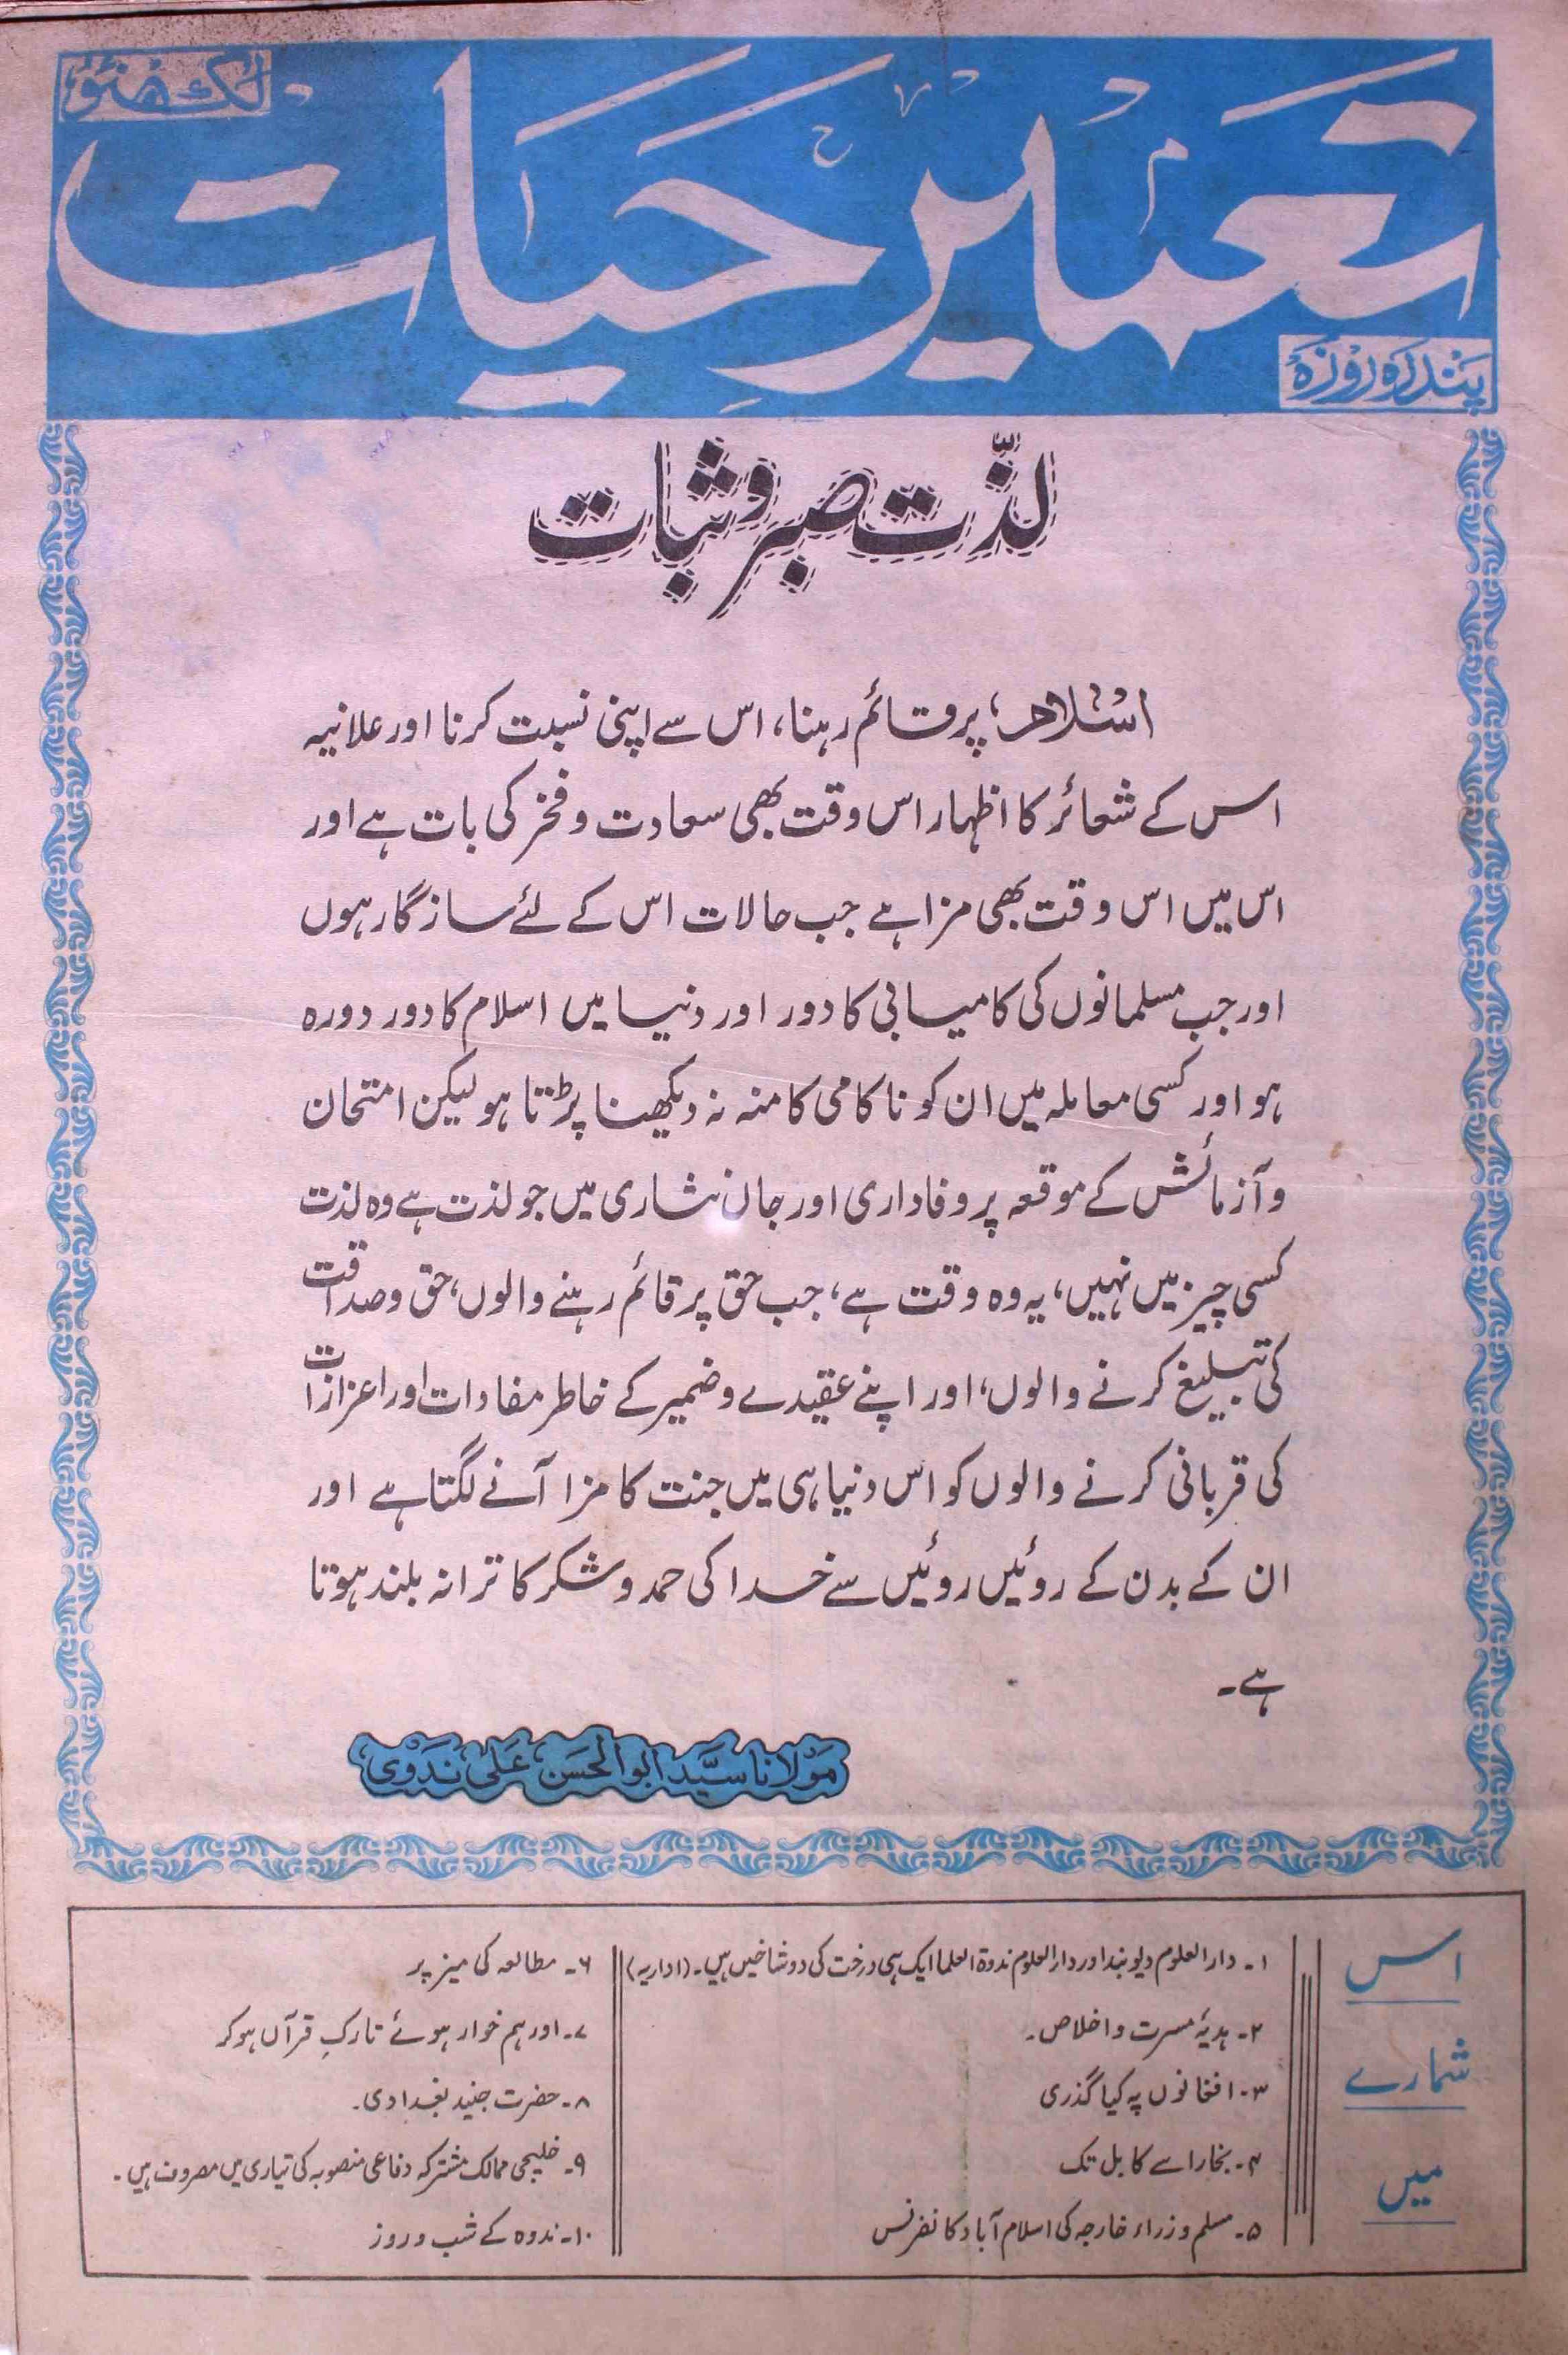 لکھنؤ
تعمیر حیات
پندرہ روزہ
لذّت صبر و ثبات
اسلام، پر قائم رہنا، اس سے اپنی نسبت کرنا اور علانیہ
اس کے شعائر کا اظہار اس وقت بھی سعادت و فخر کی بات ہے اور
اس میں اس وقت بھی مزا ہے جب حالات اس کے لئے سازگار ہوں
اور جب مسلمانوں کی کامیابی کا دور اور دنیا میں اسلام کا دور دورہ
ہو اور کسی معاملہ میں ان کو ناکامی کا منہ نہ دیکھنا پڑتا ہو لیکن امتحان
و آزمائش کے موقعہ پر وفاداری اور جاں نثاری میں جو لذت ہے وہ لذت
کسی چیز میں نہیں، یہ وہ وقت ہے، جب حق پر قائم رہنے والوں، حق و صداقت
کی تبلیغ کرنے والوں، اور اپنے عقیدے و ضمیر کے خاطر مفادات اور اعزازات
کی قربانی کرنے والوں کو اس دنیا ہی میں جنت کا مزا آنے لگتا ہے اور
ان کے بدن کے روئیں روئیں سے خدا کی حمد و شکر کا ترانہ بلند ہوتا
ہے۔
مولانا سیّد ابوالحسن علی ندوی
اس
شمارے
میں
۱۔ دارالعلوم دیوبند اور دارالعلوم ندوۃ العلما ایک ہی درخت کی دو شاخیں ہیں۔ (اداریہ)
۲۔ ہدیۂ مسرت و اخلاص۔
۳۔ افغانوں پہ کیا گذری
۴۔ بخارا سے کابل تک
۵۔ مسلم وزراء خارجہ کی اسلام آباد کانفرنس
۶۔ مطالعہ کی میز پر
۷۔ اور ہم خوار ہوئے تارکِ قرآں ہوکر
۸۔ حضرت جنید بغدادی۔
۹۔ خلیجی ممالک مشترکہ دفاعی منصوبہ کی تیاری میں مصروف ہیں۔
۱۰۔ ندوہ کے شب و روز